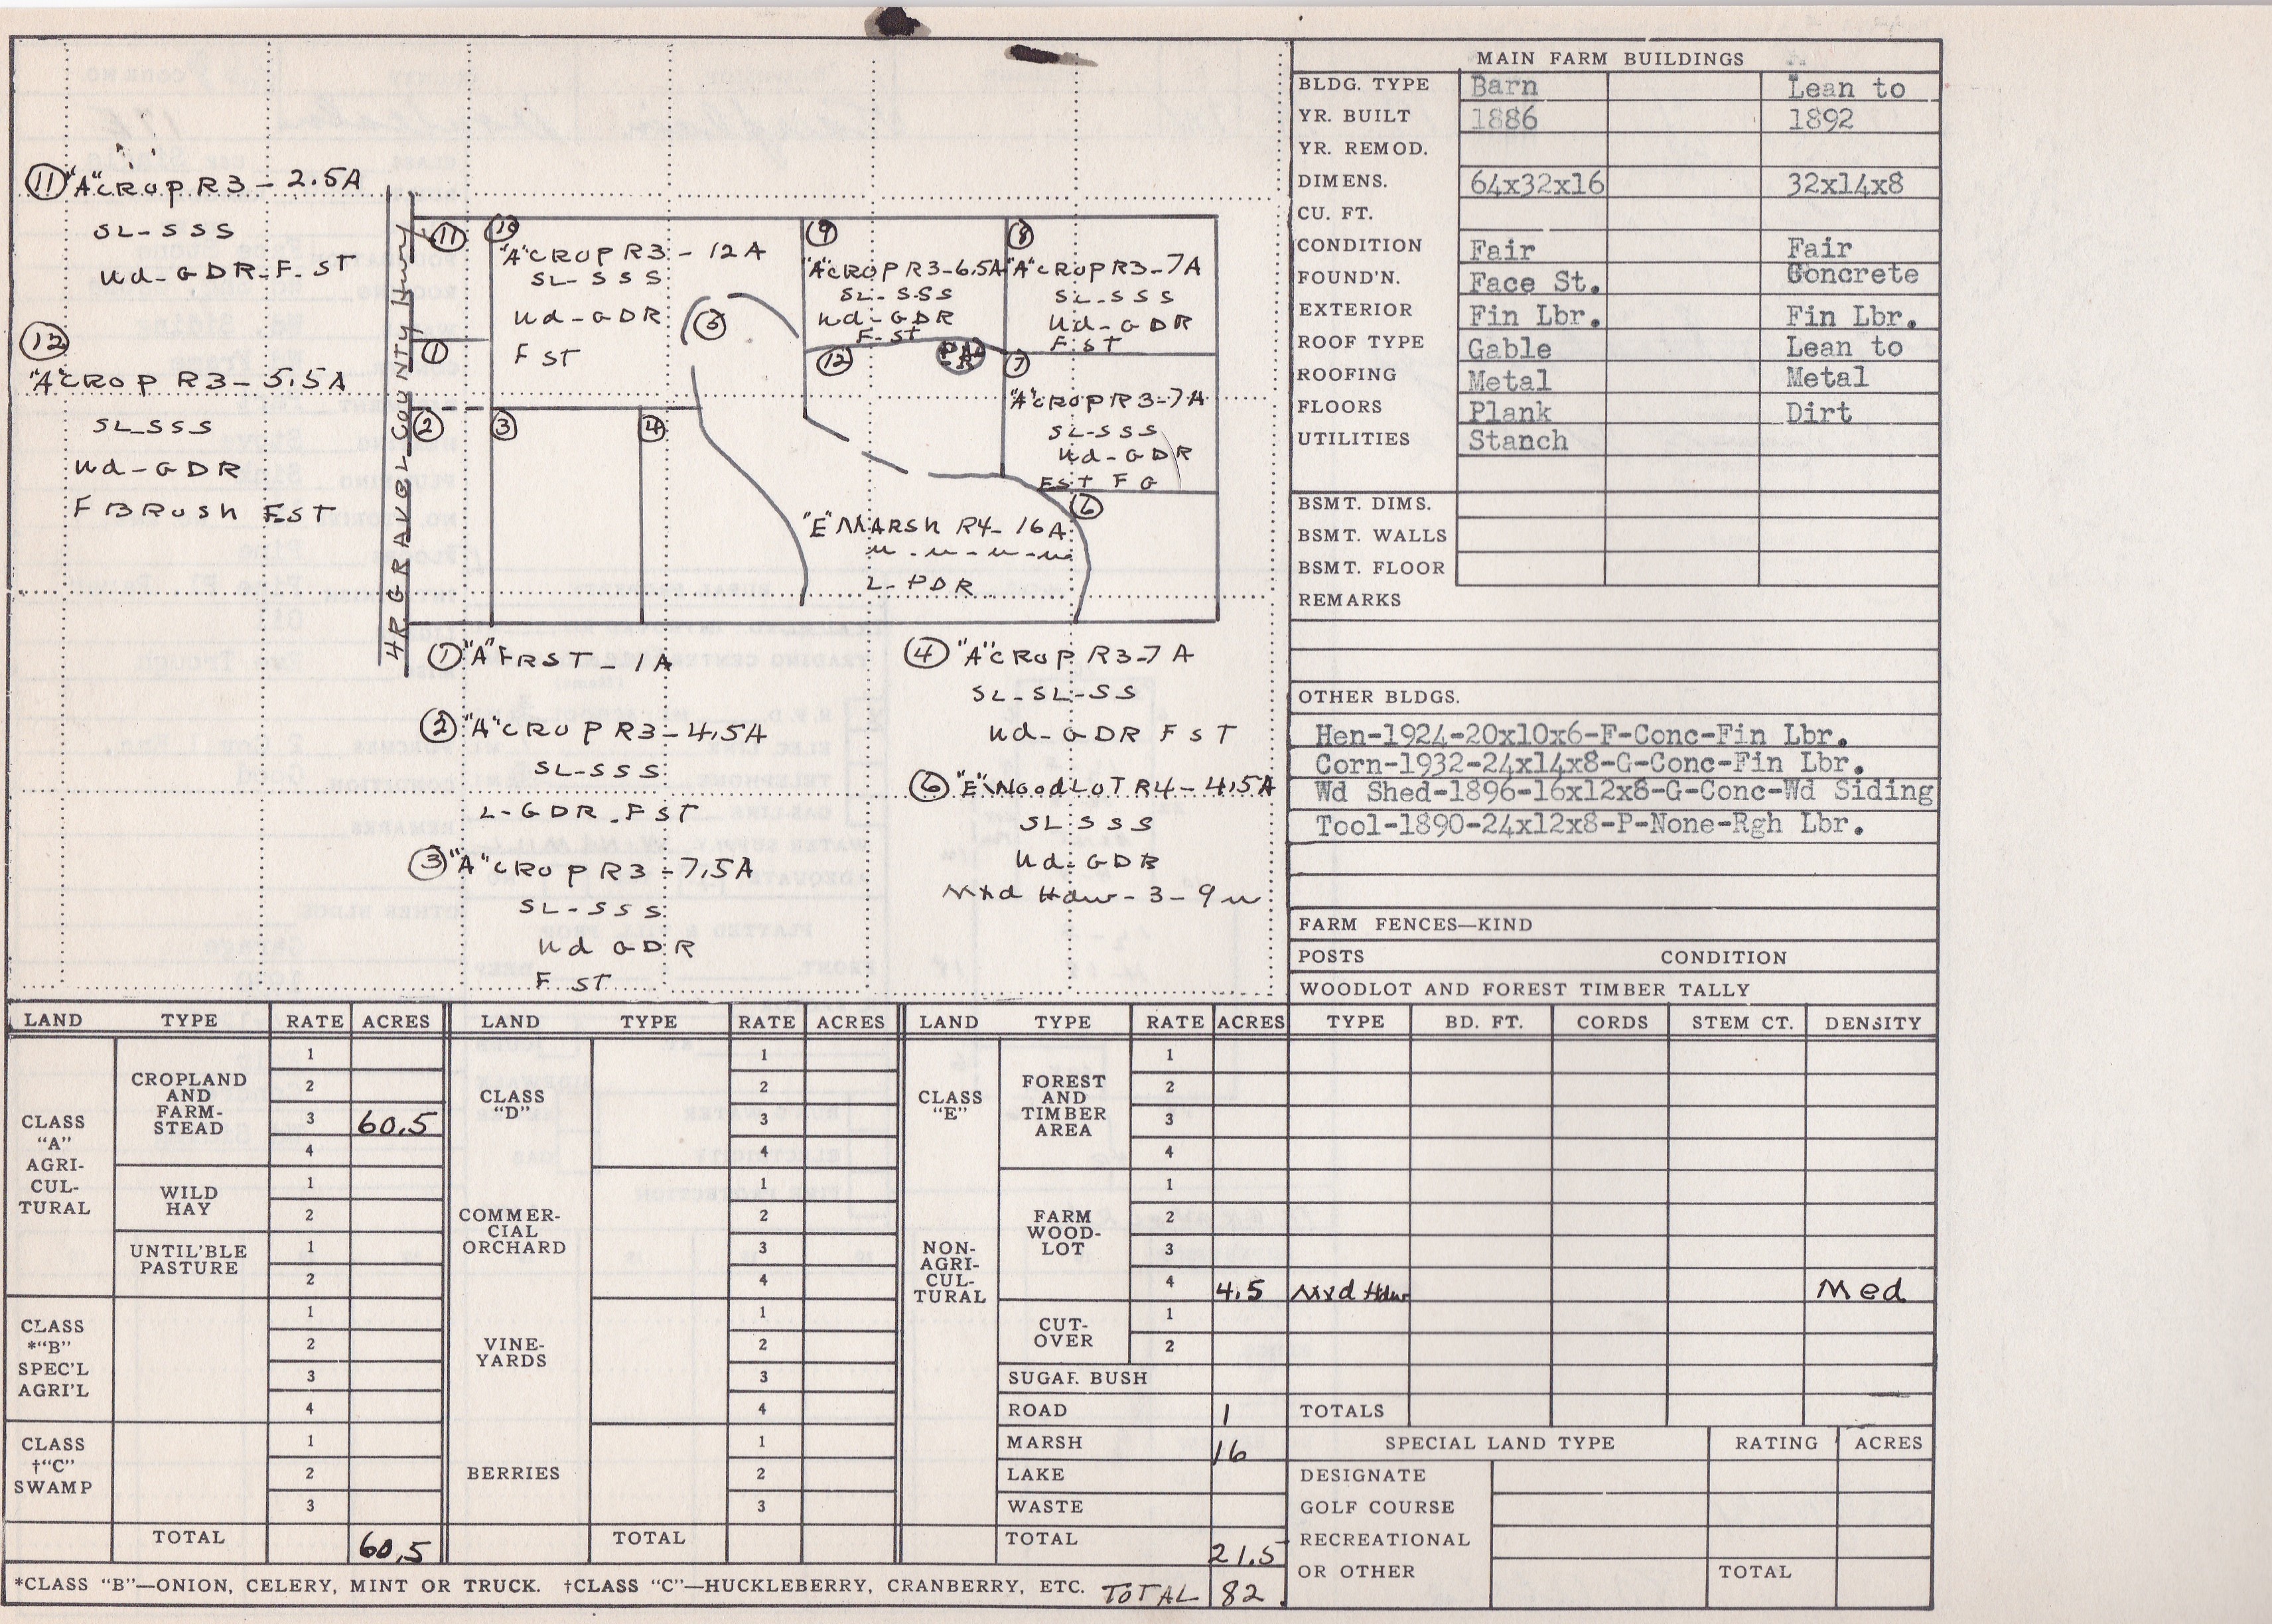 ⑪ "A" CROP R3 - 2.5A
SL-SSS
Ud-GDR-F-ST
⑫
"A" CROP R3-5.5A
SL-SSS
Ud-GDR
F BRUSH F-ST
4R GRAVEL COUNTY Hwy
⑪
⑩
"A" CROP R3 - 12A
SL-SSS
Ud-GDR
F ST
⑤
⑨
"A" CROP R3-6.5A
SL-SSS
Ud-GDR
F-ST
⑧
"A" CROP R3-7A
SL-SSS
Ud-GDR
F-ST
⑫
⑦
"A" CROP R3-7A
SL-SSS
Ud-GDR
F-ST F G
①
②
③
④
⑥
"E" MARSH R4-16A
L-PDR
① "A" FRST-1A
② "A" CROP R3-4.5A
SL-SSS
L-GDR-F ST
③ "A" CROP R3-7.5A
SL-SSS
Ud GDR
F ST
④ "A" CROP R3-7A
SL-SL-SS
Ud-GDR F ST
⑥ "E" WOODLOT R4-4.5A
SL SSS
Ud-GDR
Mxd Hdw-3-9"
MAIN FARM BUILDINGS
BLDG. TYPE Barn Lean to
YR. BUILT 1886 1892
YR. REMOD.
DIMENS. 64x32x16 32x14x8
CU. FT.
CONDITION Fair Fair
FOUND'N. Face St. Concrete
EXTERIOR Fin Lbr. Fin Lbr.
ROOF TYPE Gable Lean to
ROOFING Metal Metal
FLOORS Plank Dirt
UTILITIES Stanch
BSMT. DIMS.
BSMT. WALLS
BSMT. FLOOR
REMARKS
OTHER BLDGS.
Hen-1924-20x10x6-F-Conc-Fin Lbr.
Corn-1932-24x14x8-G-Conc-Fin Lbr.
Wd Shed-1896-16x12x8-G-Conc-Wd Siding
Tool-1890-24x12x8-P-None-Rgh Lbr.
FARM FENCES—KIND
POSTS CONDITION
WOODLOT AND FOREST TIMBER TALLY
TYPE BD. FT. CORDS STEM CT. DENSITY
Mxd Hdw Med
TOTALS
SPECIAL LAND TYPE RATING ACRES
DESIGNATE
GOLF COURSE
RECREATIONAL
OR OTHER TOTAL
LAND TYPE RATE ACRES
CLASS
"A"
AGRI-
CUL-
TURAL
CROPLAND
AND
FARM-
STEAD
1
2
3 60.5
4
WILD
HAY
1
2
UNTIL'BLE
PASTURE
1
2
CLASS
*"B"
SPEC'L
AGRI'L
1
2
3
4
CLASS
†"C"
SWAMP
1
2
3
TOTAL 60.5
LAND TYPE RATE ACRES
CLASS
"D"
1
2
3
4
COMMER-
CIAL
ORCHARD
1
2
3
4
VINE-
YARDS
1
2
3
4
BERRIES
1
2
3
TOTAL
LAND TYPE RATE ACRES
CLASS
"E"
NON-
AGRI-
CUL-
TURAL
FOREST
AND
TIMBER
AREA
1
2
3
4
FARM
WOOD-
LOT
1
2
3
4 4.5
CUT-
OVER
1
2
SUGAR BUSH
ROAD 1
MARSH 16
LAKE
WASTE
TOTAL 21.5
*CLASS "B"—ONION, CELERY, MINT OR TRUCK. †CLASS "C"—HUCKLEBERRY, CRANBERRY, ETC. TOTAL 82